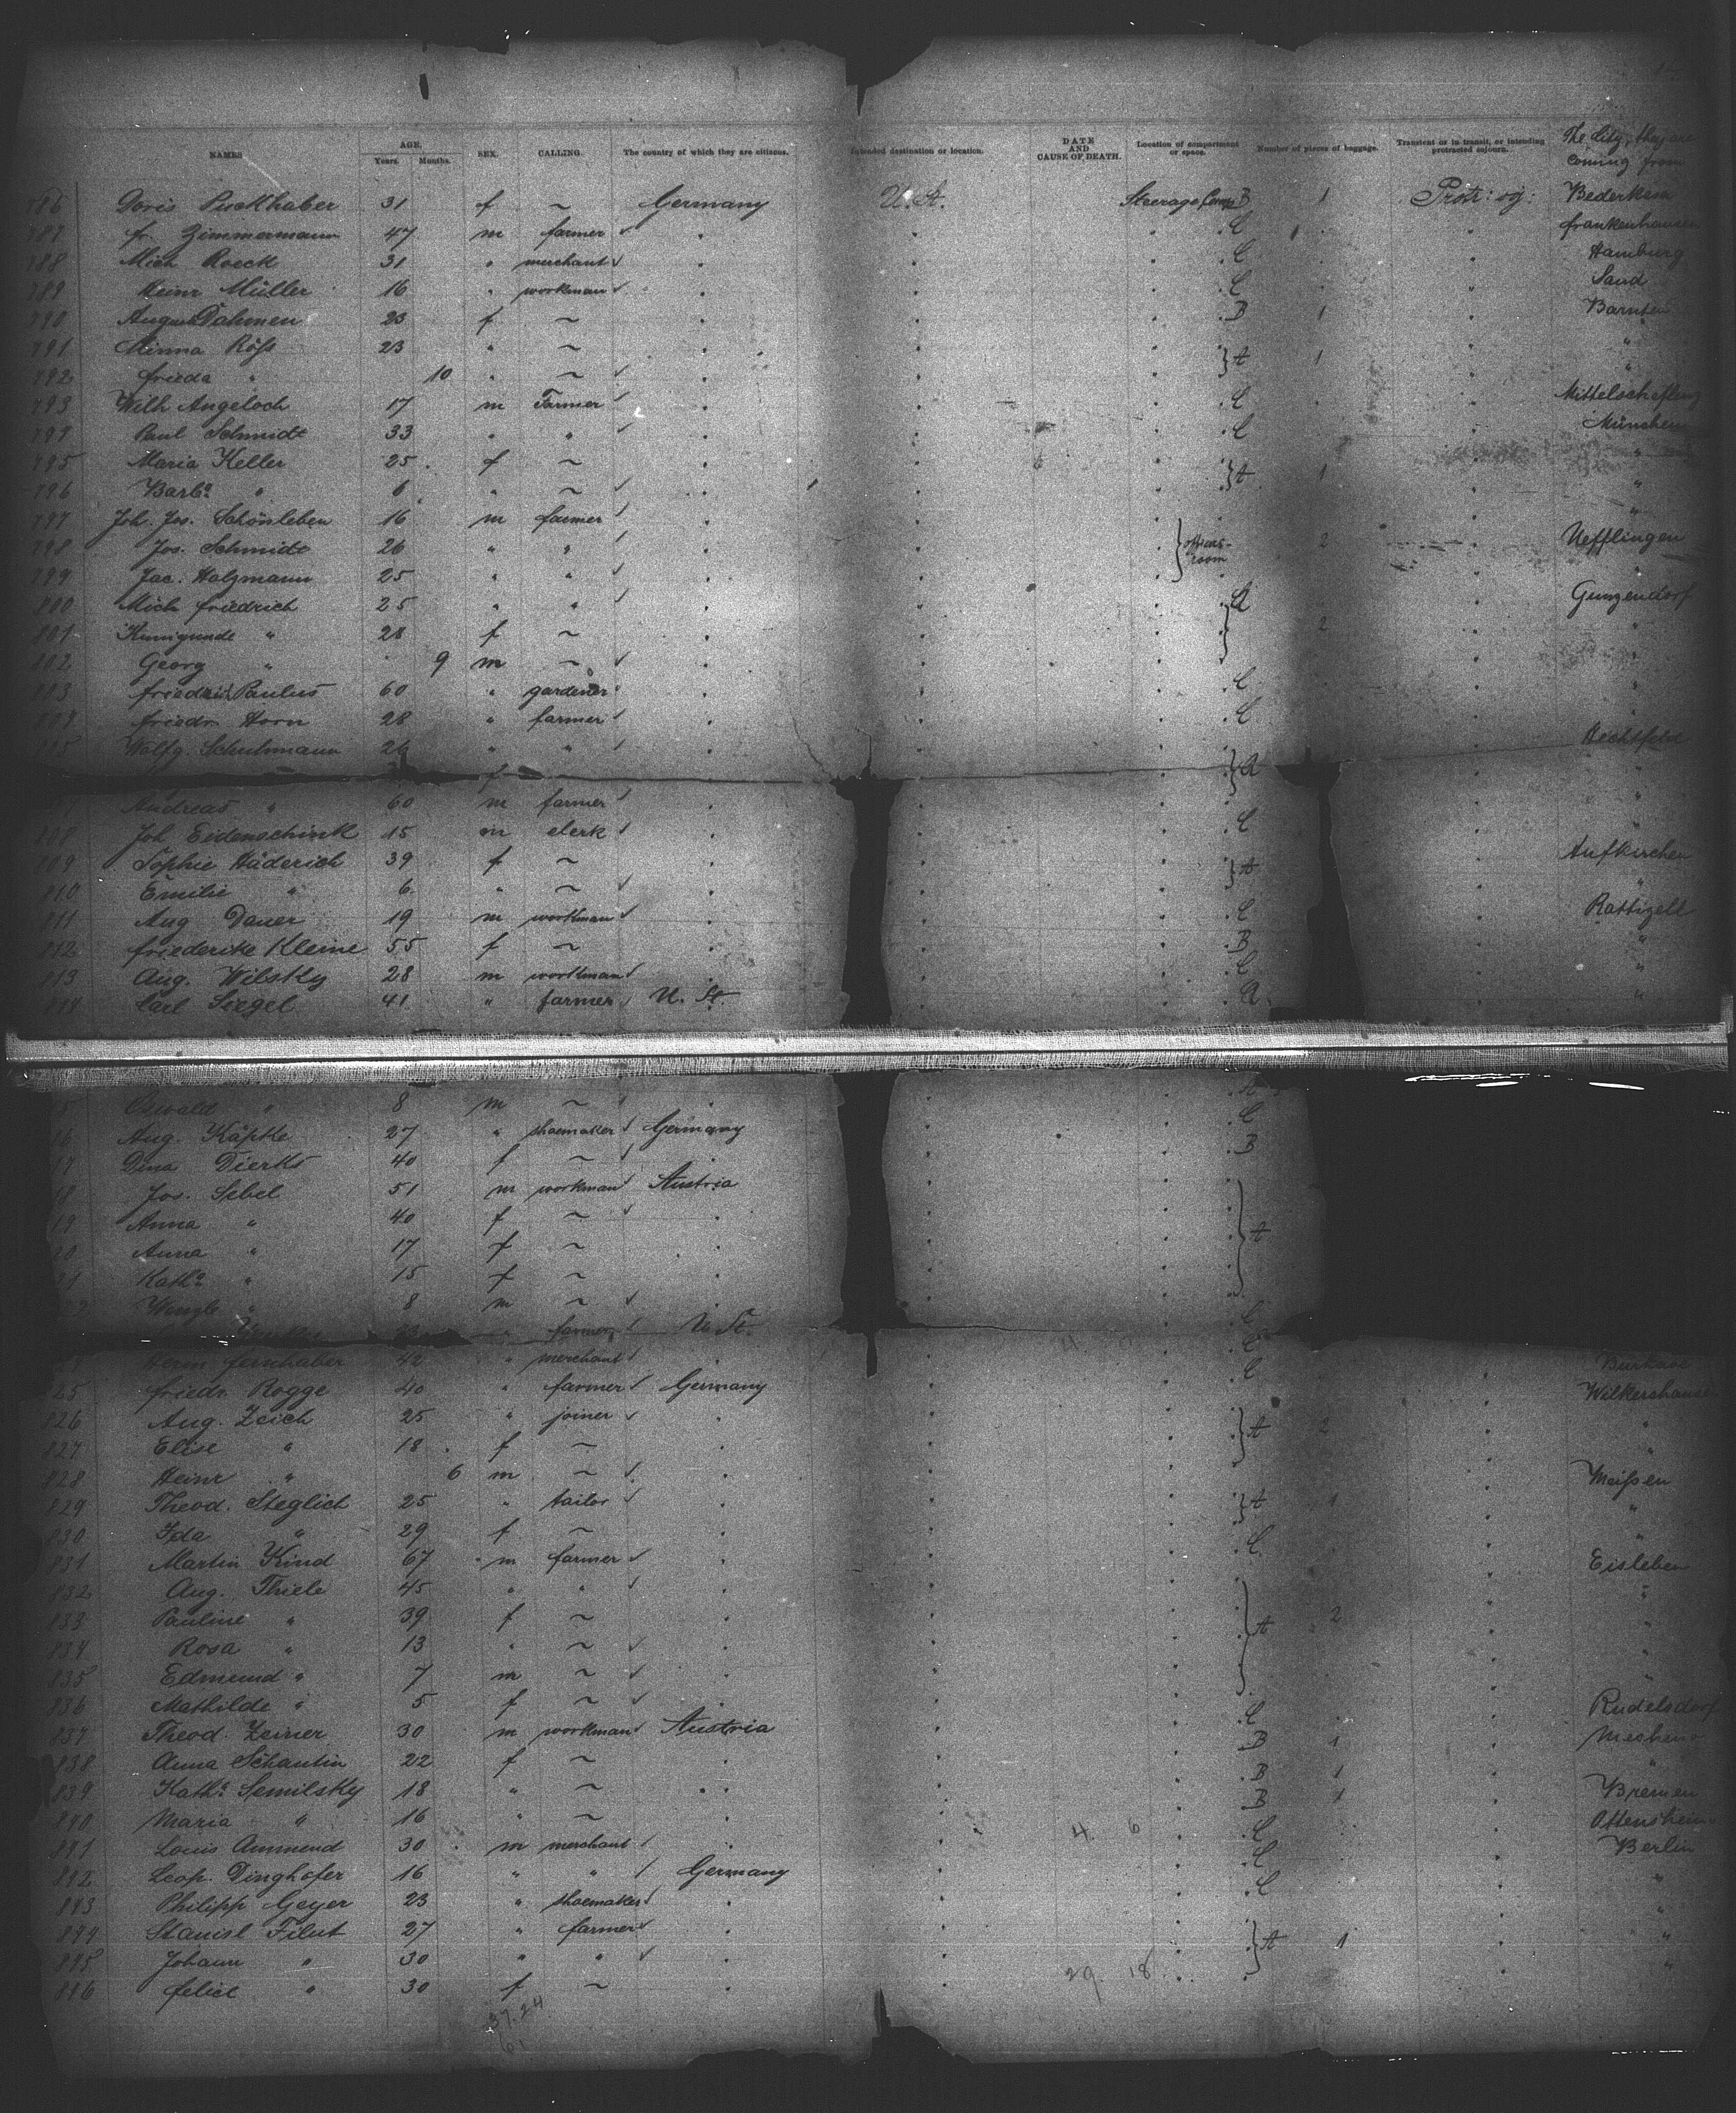 NAMES AGE. Years. Months. SEX. CALLING. The country of which they are citizens. Intended destination or location. DATE AND CAUSE OF DEATH. Location of compartment or space. Number of pieces of baggage. Transient or in transit, or intending protracted sojourn. The City they are coming from
786 Doris Puckhaber 31 f ~ Germany U. St. Steerage Comp B 1 Protr: soj: Bederkesa
787 Fr. Zimmermann 47 m farmer " " " C " Frankenhausen
788 Mich Roeck 31 " merchant " " " C " Hamburg
789 Heinr Müller 16 " workman " " " C " Sand
790 August Dahmen 23 f ~ " " " B 1 " Barnten
791 Minna Röhs 23 " ~ " " " } A 1 " "
792 Frieda " 10 " ~ " " " " "
793 Wilh Angeloch 17 m Farmer " " " C "
794 Paul Schmidt 33 " " " " " C " München
795 Maria Keller 25 f ~ " " " } A 1 " "
796 Barba " 6 " ~ " " " " "
797 Joh. Jos. Schönleben 16 m farmer " " " "
798 Jos. Schmidt 26 " " " " " } officers-room 2 "
799 Jac. Holzmann 25 " " " " " "
800 Mich Friedrich 25 " " " " " } A " Gunzendorf
801 Kunigunde " 28 f ~ " " " 2 " "
802 Georg " 9 m ~ " " " " "
803 Friedrich Paulus 60 " gardener " " " C " "
804 Friedr Horn 28 " farmer " " " C " "
805 Wolfg. Schuhmann 26 " " " " " "
f " } A "
Andreas " 60 m farmer " " " " "
808 Joh Eidenschink 15 m clerk " " " C " "
809 Sophie Häderich 39 f ~ " " " } A " Aufkirchen
810 Emilie " 6 " ~ " " " " "
811 Aug Dauer 19 m workman " " " C " Rattizell
812 Friederike Kleine 55 f ~ " " " B " "
813 Aug. Wilsky 28 m workman " " " C " "
814 Carl Siegel 41 " farmer U. St. " " A " "
15 Oswald " 8 m ~ " " " A
16 Aug. Käpke 27 " shoemaker Germany " " C
17 Dina Dierks 40 f ~ " " " B
18 Jos. Sebel 51 m workman Austria " "
19 Anna " 40 f ~ " " "
20 Anna " 17 f ~ " " " } A
21 Katha " 15 f ~ " " "
22 " 8 m ~ " " "
" farmer U. St. " " C
Herm Fernhaber 42 " merchant " " C "
25 Friedr. Rogge 40 " farmer Germany " " C " Wilkershausen
826 Aug. Zeich 25 " joiner " " " } A 2 " "
827 Elise " 18 f ~ " " " " "
828 Heinr " 6 m ~ " " " "
829 Theod. Steglich 25 " tailor " " " } A 1 " Meißen
830 Ida " 29 f ~ " " " " "
831 Martin Kind 67 m farmer " " " C " "
832 Aug. Thiele 45 " " " " " " Eisleben
833 Pauline " 39 f ~ " " " " "
834 Rosa " 13 " ~ " " " } A 2 " "
835 Edmund " 7 m ~ " " " " "
836 Mathilde " 5 f ~ " " " " "
837 Theod. Zeiner 30 m workman Austria " " C " Rudelsdorf
838 Anna Schantin 22 f ~ " " " B 1 "
839 Katha Semilsky 18 " ~ " " " B 1 " "
840 Maria " 16 " ~ " " " B 1 "
841 Louis Ammend 30 m merchant " " 4. 6 " C " Bremen
842 Leop. Dinghofer 16 " " Germany " " C " Ottensheim
843 Philipp Geyer 23 " shoemaker " " " C " Berlin
844 Stanisl Filut 27 " farmer " " " } A 1 " "
845 Johann " 30 " " " " " " "
846 Felict " 30 f ~ " " 29. 18. " " "
37.24
61